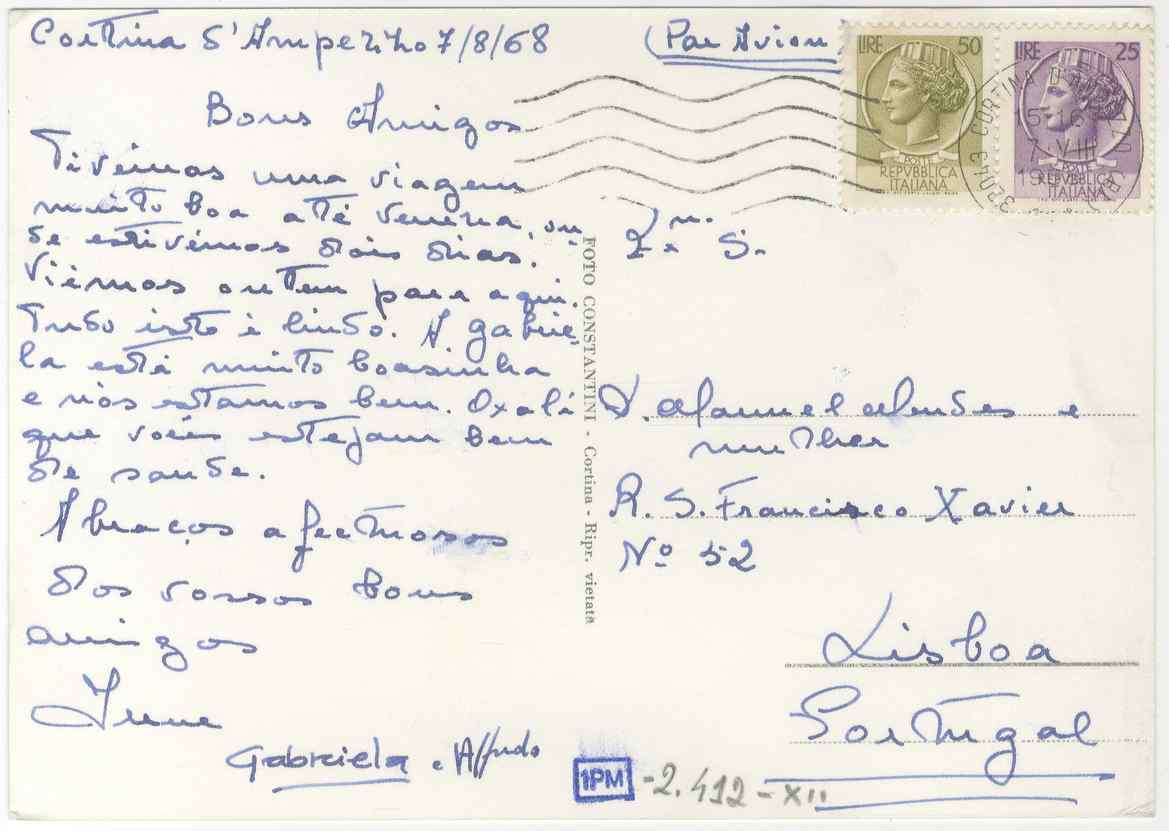 Cortina d'Ampezzo 7/8/68
(Par Avion)
Bons Amigos
Tivémos uma viagem
muito boa até Veneza, on-
de estivémos dois dias.
Viémos ontem para aqui.
Tudo isto é lindo. A Gabrie-
la está muito boasinha
e nós estamos bem. Oxalá
que vocês estejam bem
de saude.
Abraços afectuosos
dos vossos bons
amigos
Irene
Gabriela e Alfredo
FOTO CONSTANTINI - Cortina - Ripr. vietata
LIRE 50
POSTE
REPVBBLICA
ITALIANA
LIRE 25
REPVBBLICA
ITALIANA
32043 CORTINA D'AMPEZZO
7 VIII
Exmo. S.
D. Manuel Mendes e
mulher
R. S. Francisco Xavier
Nº 52
Lisboa
Portugal
1PM
-2.412-XII